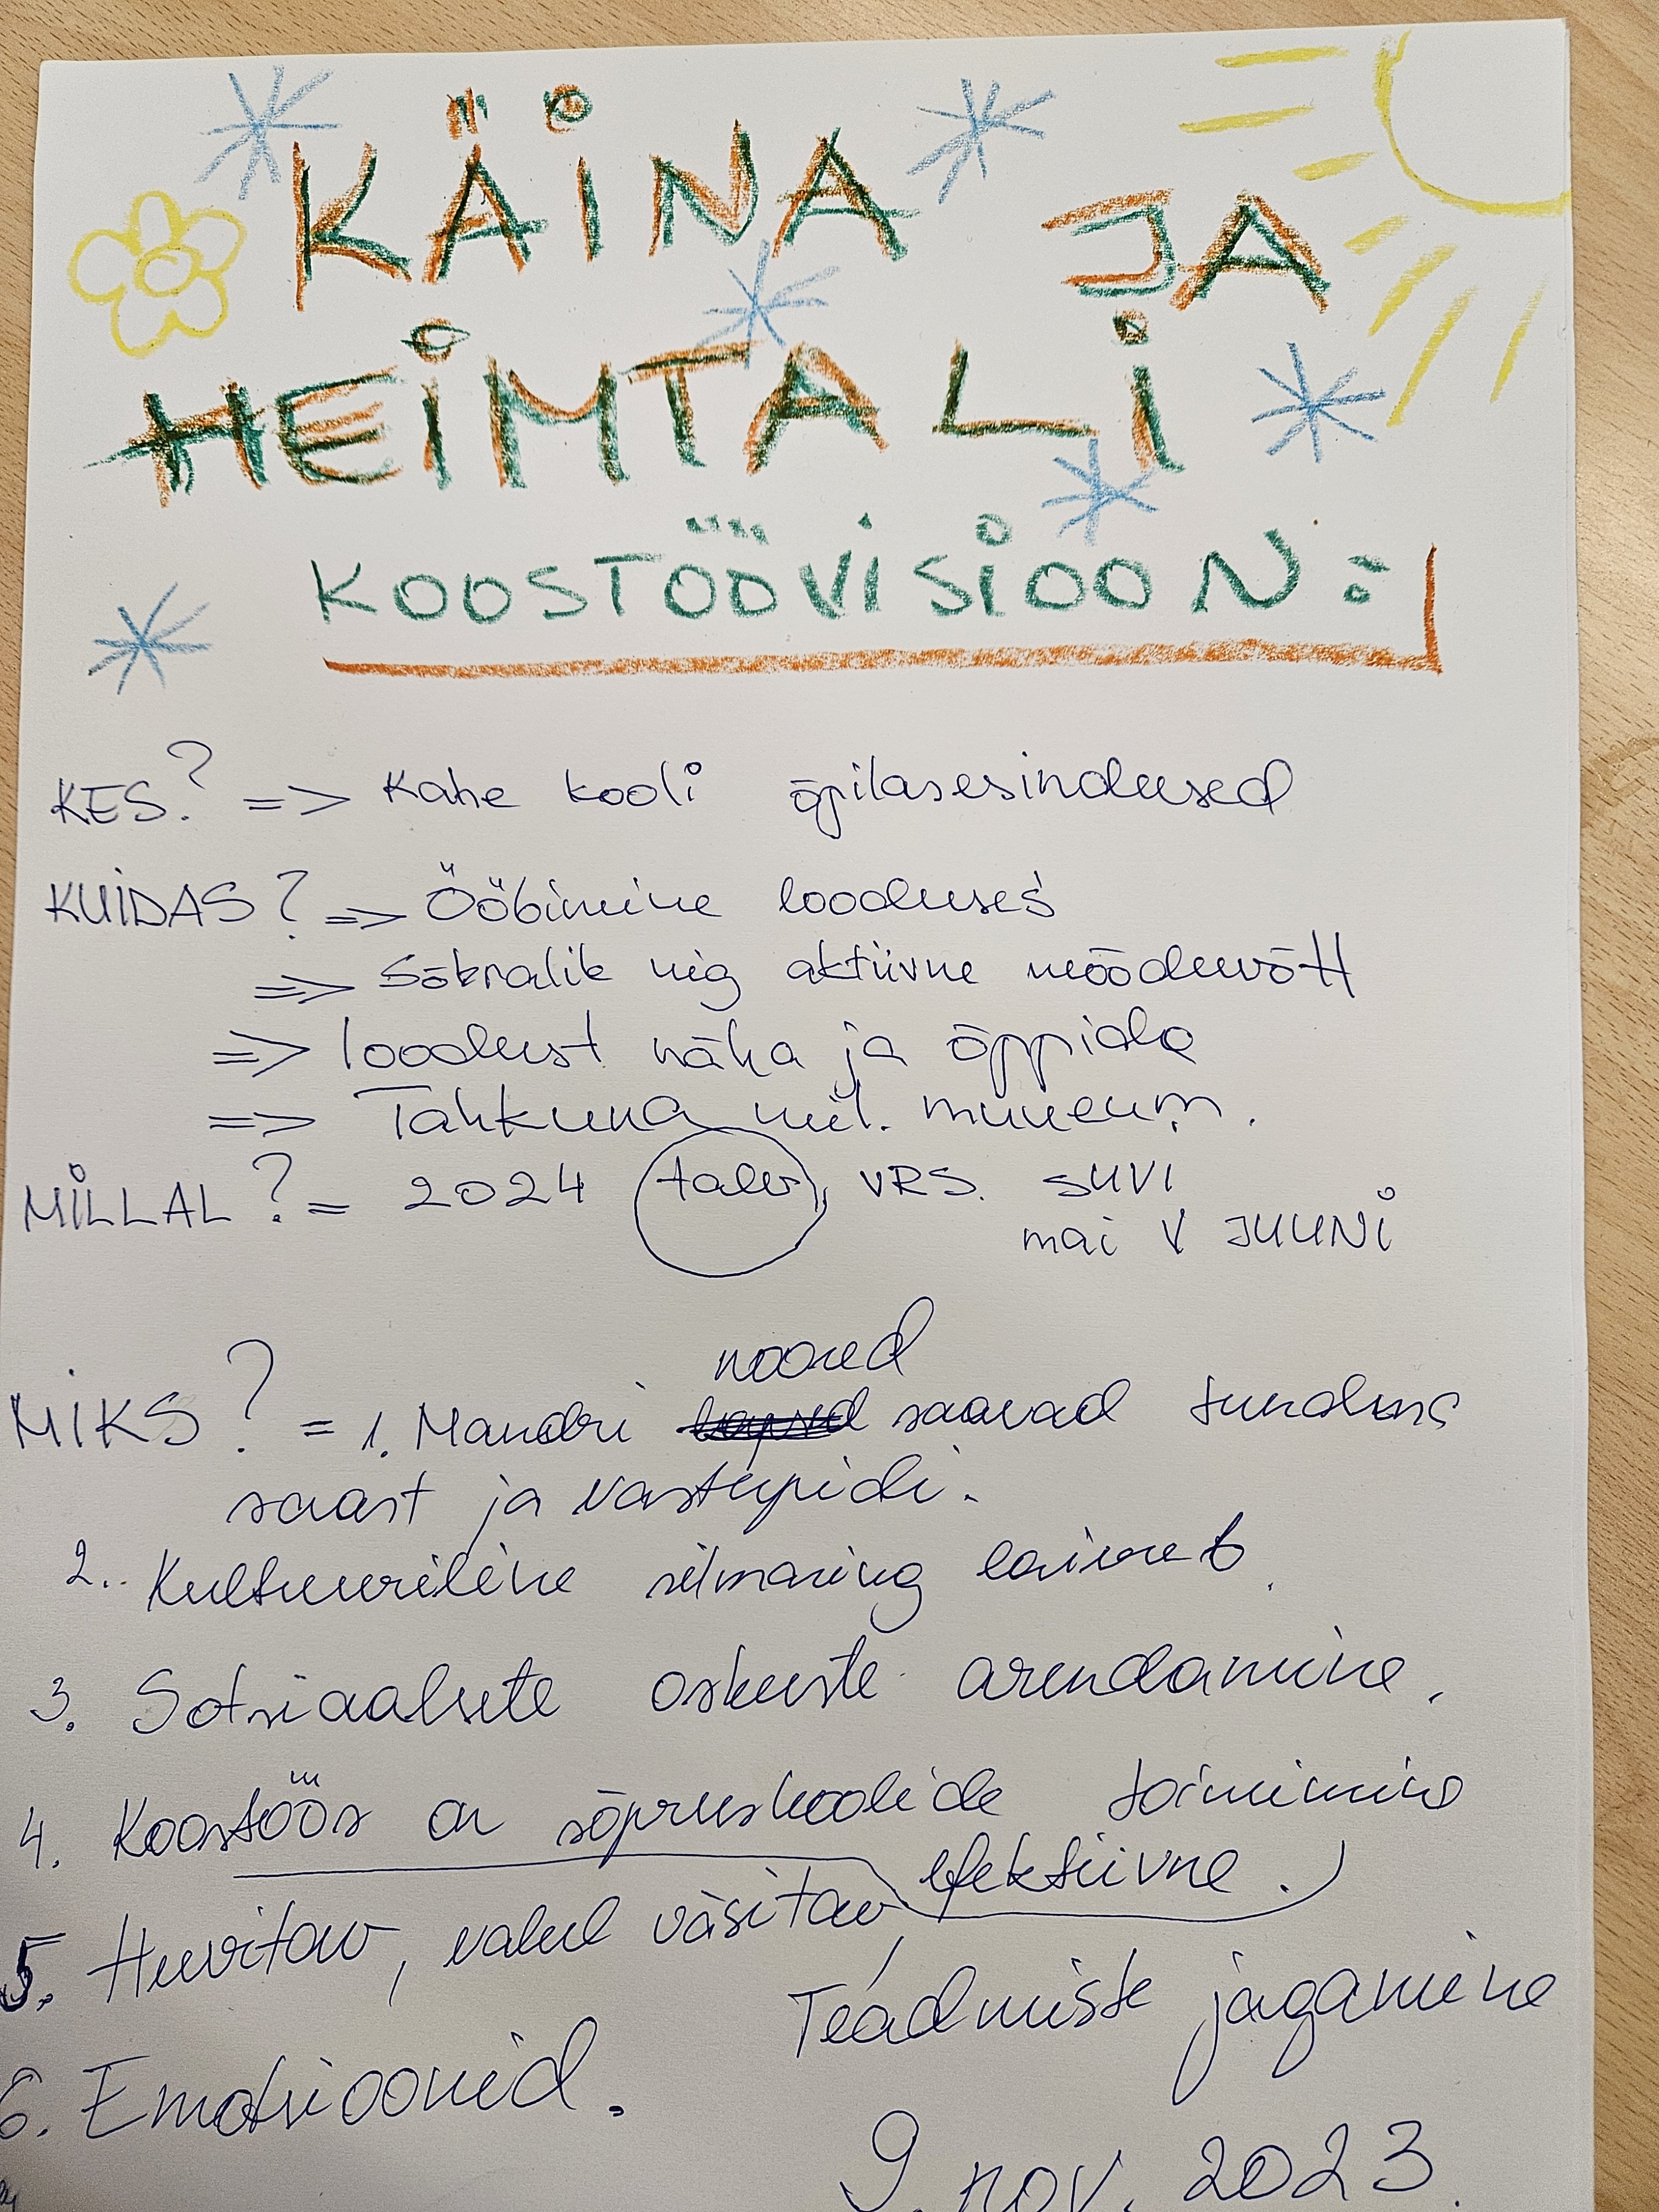 KÄINA JA
HEIMTALI
KOOSTÖÖVISIOON:
KES? => Kahe kooli õpilasesindused
KUIDAS? => Ööbimine looduses
=> Sõbralik nig aktiivne möödawõtt
=> loodust näha ja õppida
=> Tahkuna mil. muuseum.
MILLAL? = 2024 talv, VRS. SUVI
mai V JUUNI
noored
MIKS? = 1. Mandri saavad tundma
saart ja vastupidi.
2. Kultuuriline silmaring laieneb.
3. Sotsiaalsete oskuste arendamine.
4. Koostöös on sõpruskoolide toimimine
efektiivne.
5. Huvitav, vahel väsitav,
Teadmiste jagamine
6. Emotsioonid.
9. nov. 2023.